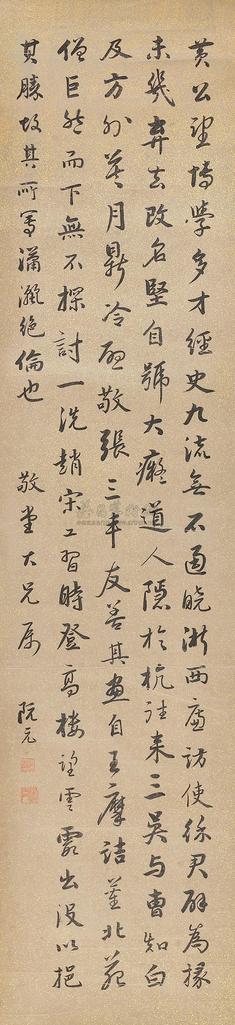 黄公望博學多才經史九流無不通曉浙西廉訪使徐君辟為掾
未幾棄去改名堅自號大癡道人隱於杭往来三吴与曹知白
及方外莫月鼎冷啟敬張三丰友善其畫自王摩詰董北苑
僧巨然而下無不探討一洗趙宋工習時登高樓望雲霞出没以挹
其勝故其所寫瀟灑絶倫也
敬堂大兄屬
阮元